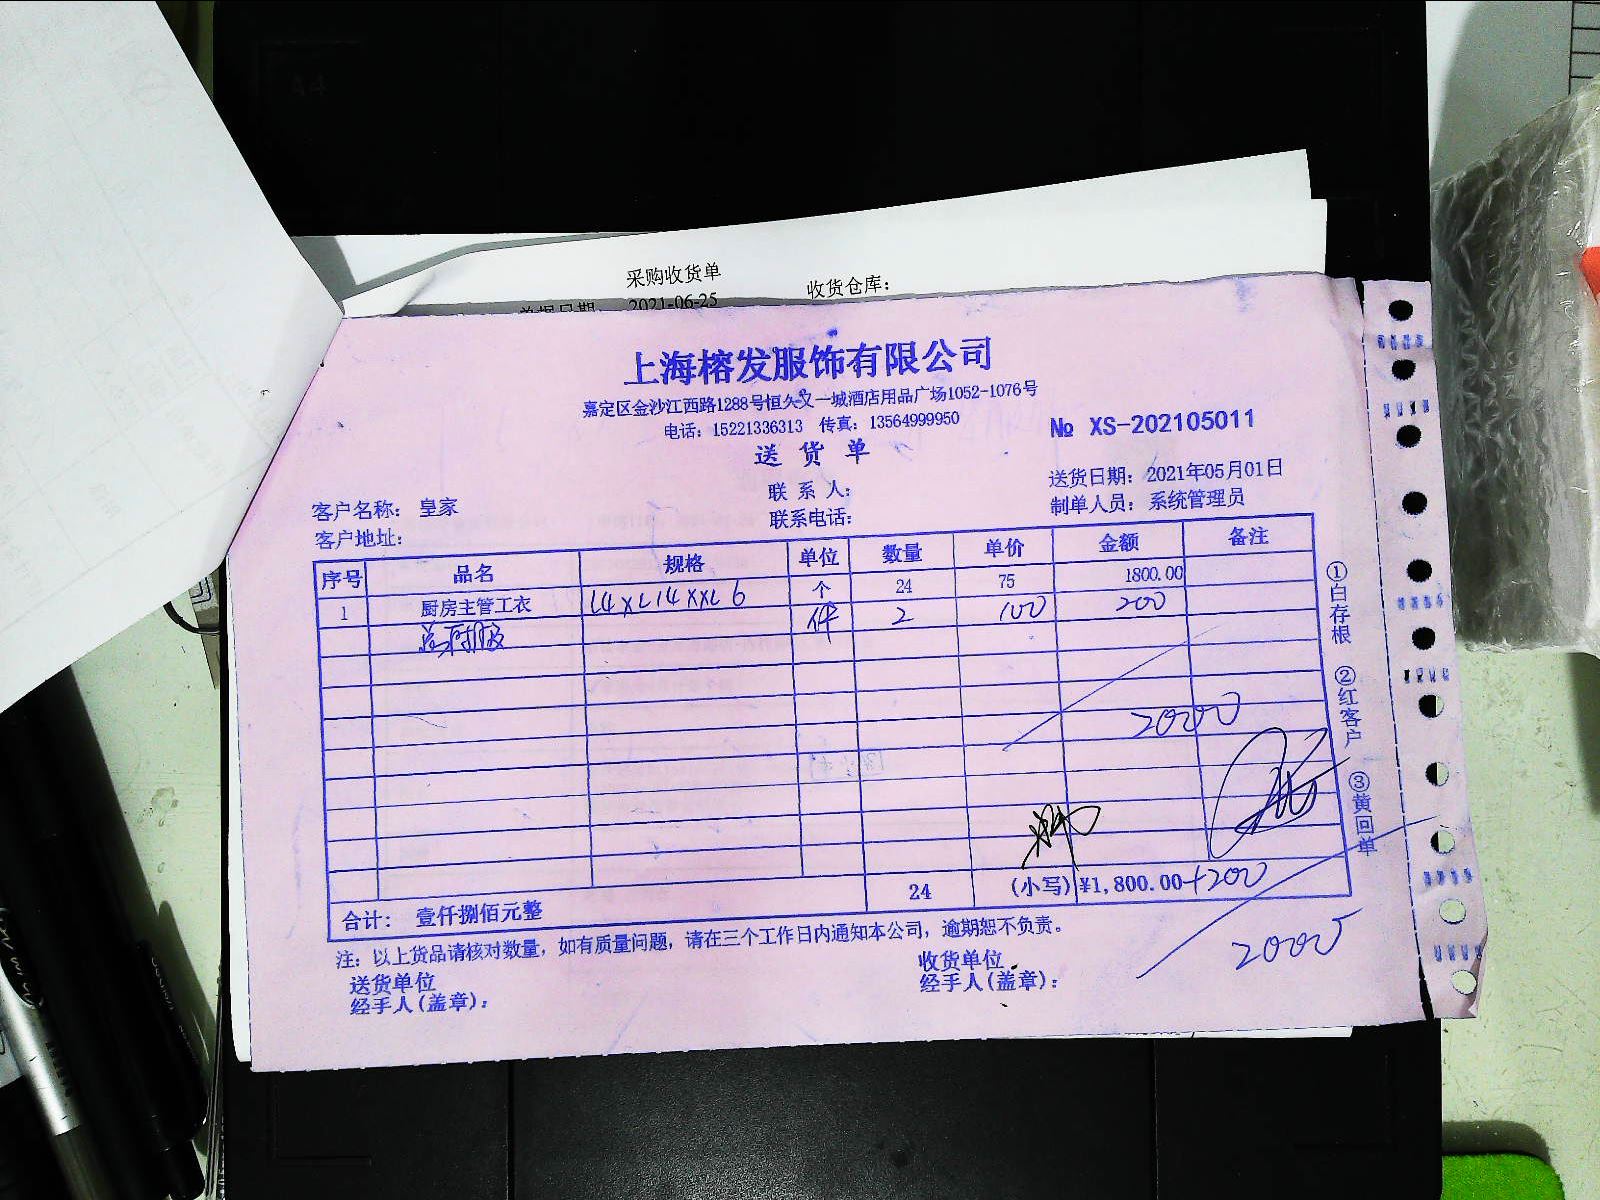 采购收货单
单据日期: 2021-06-25 收货仓库:
上海榕发服饰有限公司
嘉定区金沙江西路1288号恒久又一城酒店用品广场1052-1076号
电话: 15221336313 传真: 13564999950
№ XS-202105011
送货单
送货日期: 2021年05月01日
联系人:
制单人员: 系统管理员
客户名称: 皇家
联系电话:
客户地址:
序号 品名 规格 单位 数量 单价 金额 备注
1 厨房主管工衣 L4 XL14 XXL6 个 24 75 1800.00
件 2 100 200
2000
合计: 壹仟捌佰元整 24 (小写) ¥1,800.00+200
2000
注: 以上货品请核对数量, 如有质量问题, 请在三个工作日内通知本公司, 逾期恕不负责。
送货单位 收货单位
经手人(盖章): 经手人(盖章):
①白存根 ②红客户 ③黄回单